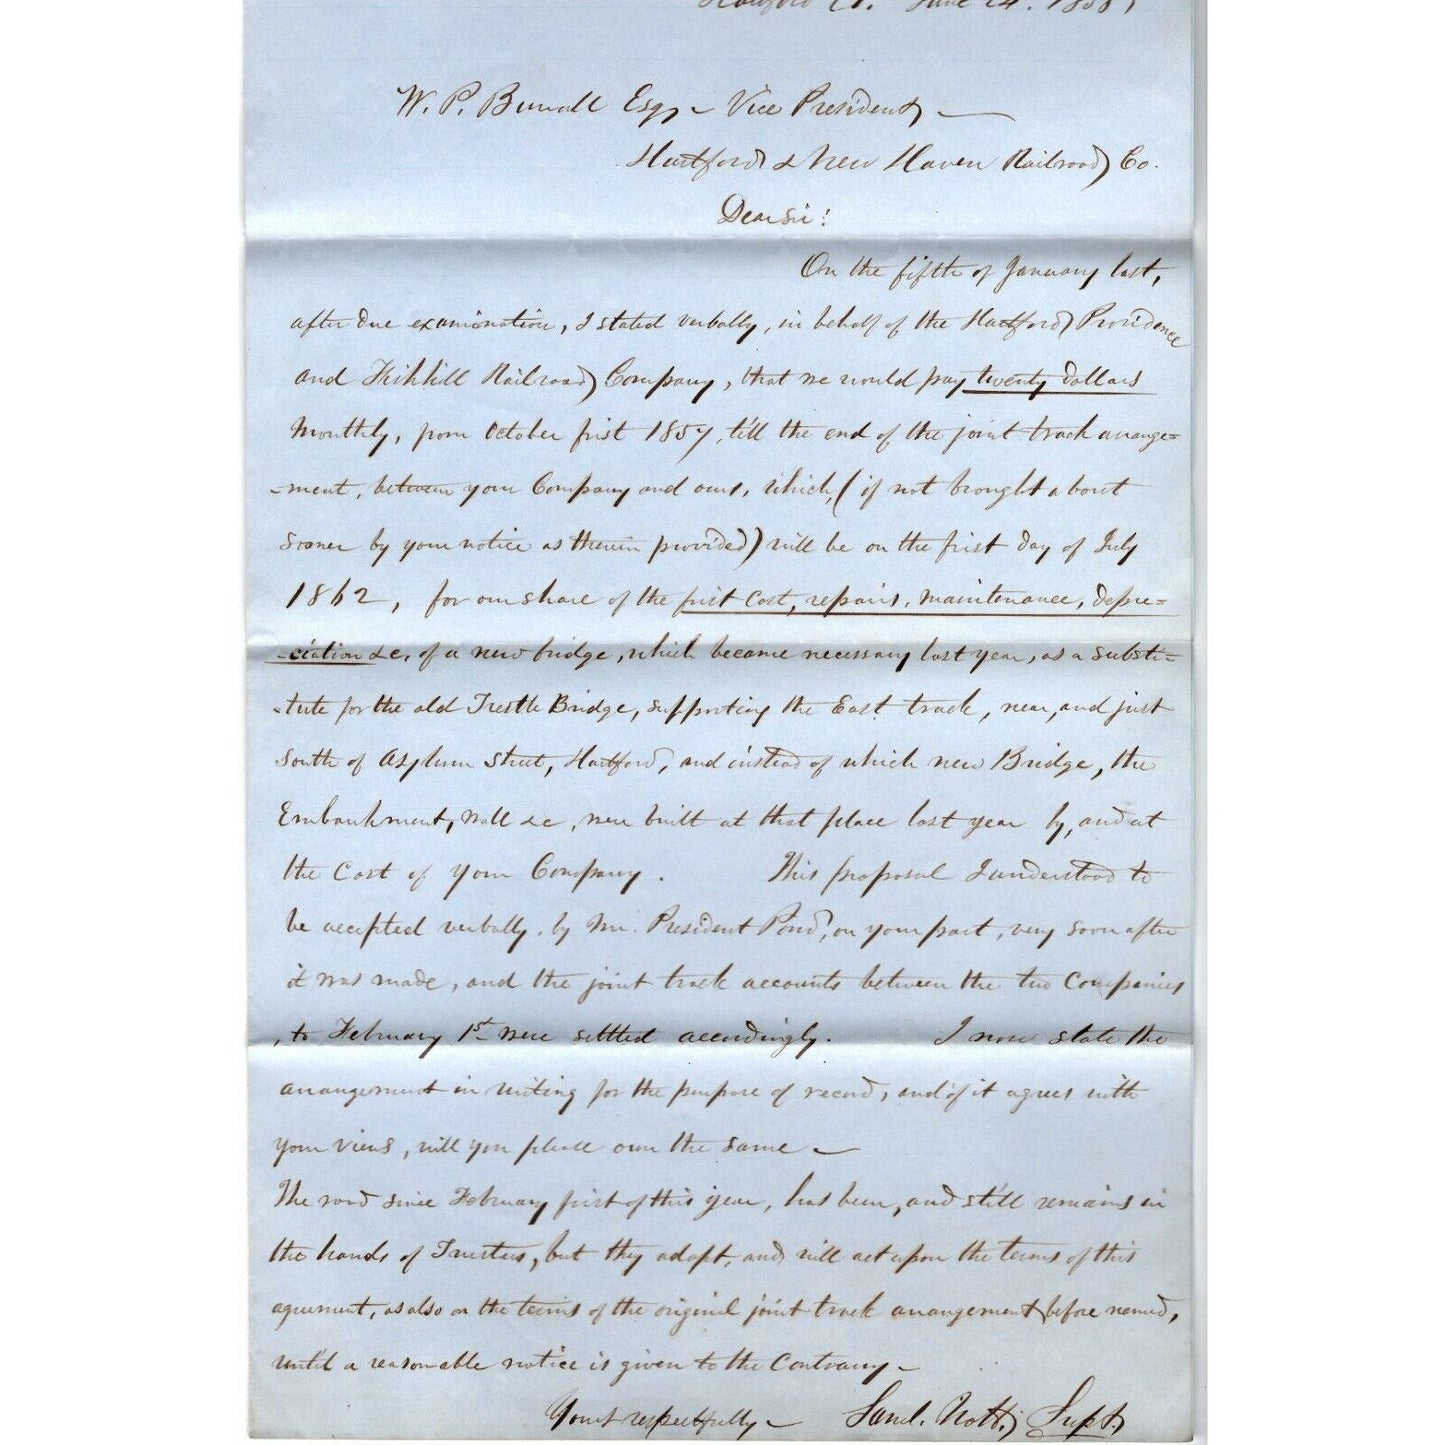 Hartford Ct. June 24. 1858,
W. P. Burrall Esq, - Vice President -
Hartford & New Haven Railroad Co.
Dear Sir:
On the fifth of January last,
after due examination, I stated verbally, in behalf of the Hartford, Providence
and Fishkill Railroad Company, that we would pay twenty dollars
Monthly, from October first 1857, till the end of the joint track arrange=
-ment, between your Company and ours, which, (if not brought about
sooner by your notice as therein provided) will be on the first day of July
1862, for our share of the first cost, repairs, maintenance, depre=
-ciation &c, of a new bridge, which became necessary last year, as a substi=
-tute for the old Trestle Bridge, supporting the East track, near, and just
south of Asylum Street, Hartford, and instead of which new Bridge, the
Embankment, wall &c, were built at that place last year by, and at
the Cost of your Company. This proposal I understood to
be accepted verbally, by Mr. President Pond, on your part, very soon after
it was made, and the joint track accounts between the two Companies
, to February 1st were settled accordingly. I now state the
arrangement in writing for the purpose of record, and if it agrees with
your views, will you please own the same -
The road since February first of this year, has been, and still remains in
the hands of Trustees, but they adopt, and will act upon the terms of this
agreement, as also on the terms of the original joint track arrangement before named,
until a reasonable notice is given to the Contrary -
Yours respectfully - Saml. Nott, Supt,